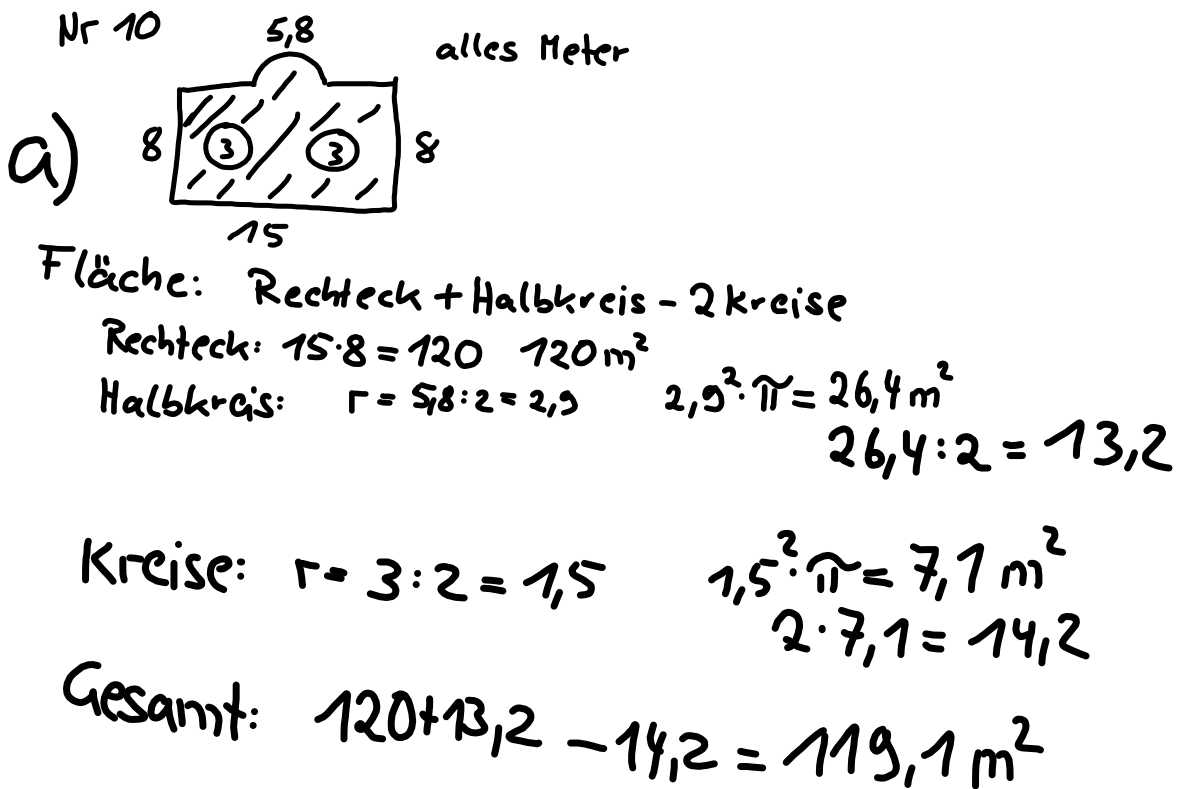 Nr 10
5,8
alles Meter
a)
8
3
3
8
15
Fläche: Rechteck + Halbkreis - 2 Kreise
Rechteck: 15·8 = 120 120 m²
Halbkreis: r = 5,8:2 = 2,9 2,9²·π = 26,4 m²
26,4:2 = 13,2
Kreise: r = 3:2 = 1,5 1,5²·π = 7,1 m²
2·7,1 = 14,2
Gesamt: 120+13,2 - 14,2 = 119,1 m²